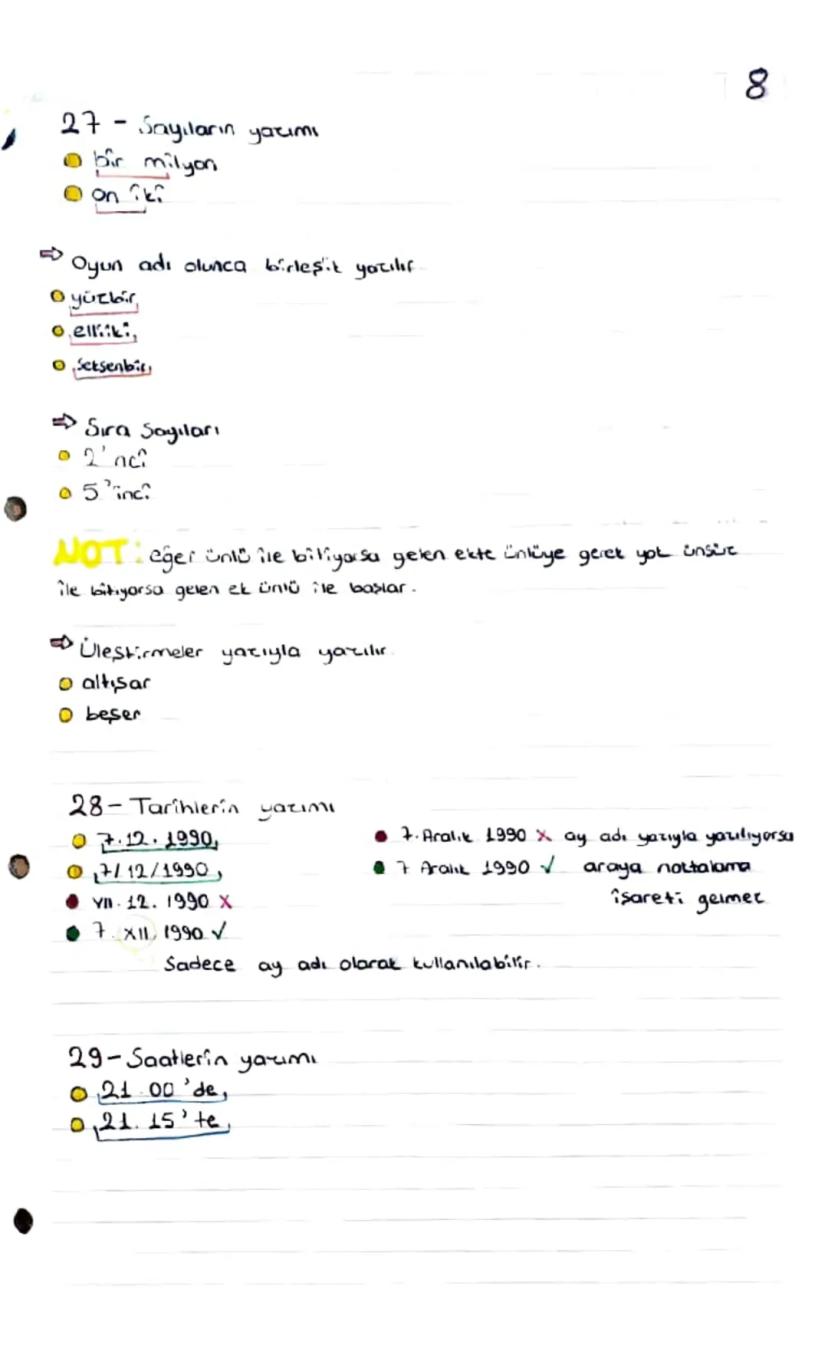 8
27 - Sayıların yazımı
bir milyon
on iki
⇒ Oyun adı olunca birleşik yazılır.
yüzbir
elliiki
seksenbir
⇒ Sıra Sayıları
2'nci
5'inci
NOT: eğer ünlü ile bitiyorsa gelen ekte ünlüye gerek yok ünsüz
ile bitiyorsa gelen ek ünlü ile başlar.
⇒ Üleştirmeler yazıyla yazılır.
altışar
beşer
28- Tarihlerin yazımı
7.12.1990
7/12/1990
VII.12.1990 X
7.XII.1990 ✓
Sadece ay adı olarak kullanılabilir.
7.Aralık 1990 X ay adı yazıyla yazılıyorsa
7 Aralık 1990 ✓ araya noktalama
işareti gelmez
29- Saatlerin yazımı
21.00'de
21.15'te